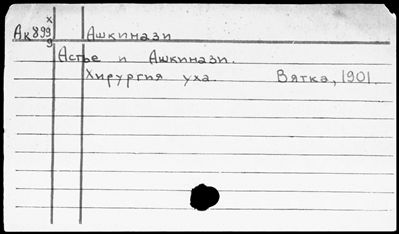 х
Ак899 Ашкинази
9
Астье и Ашкинази.
Хирургия уха. Вятка, 1901.